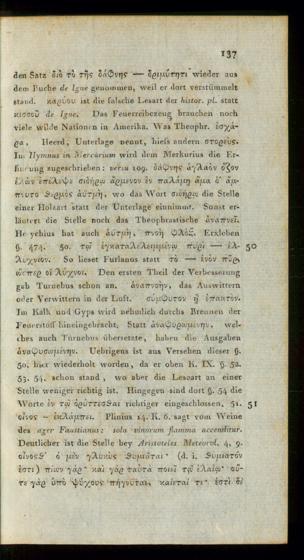 137
den Satz διὸ τὸ τῆς δάφνης — δριμύτητι wieder aus
dem Buche de Igne genommen, weil er dort verstümmelt
stand. καρύου ist die falsche Lesart der histor. pl. statt
κισσοῦ de Igne. Das Feuerreibezeug brauchen noch
viele wilde Nationen in Amerika. Was Theophr. ἐσχά-
ρα, Heerd, Unterlage nennt, hiefs andern στορεύς.
Im Hymnus in Mercurium wird dem Merkurius die Er-
findung zugeschrieben: versu 109. δάφνης ἀγλαὸν ὄζον
ἑλὼν ἐπέλεψε σιδήρῳ ἄρμενον ἐν παλάμῃ ἅμα δ᾽ ἄμ-
πνυτο θερμὸς ἀϋτμή, wo das Wort σιδήρῳ die Stelle
einer Holzart statt der Unterlage einnimmt. Sonst er-
läutert die Stelle noch das Theophrastische ἀναπνεῖ.
Hesychius hat auch ἀϋτμή, πνοὴ φλόξ. Erxleben
§. 474. 50. τῷ ἐγκαταλελειμμένῳ πυρὶ — ἐλ- 50
λύχνιον. So lieset Furlanus statt τὸ — ἑνὸν πῦρ
ὥσπερ οἱ λύχνοι. Den ersten Theil der Verbesserung
gab Turnebus schon an. ἀναπνοὴν, das Auswittern
oder Verwittern in der Luft. σύμφυτον ἢ ἐπακτον.
Im Kalk und Gyps wird nehmlich durchs Brennen der
Feuerstoff hineingebracht. Statt ἀναφυρωμένην, wel-
ches auch Turnebus übersetzte, haben die Ausgaben
ἀναφυσωμένην. Uebrigens ist aus Versehen dieser §.
50. hier wiederholt worden, da er oben K. IX. §. 52.
53. 54. schon stand, wo aber die Leseart an einer
Stelle weniger richtig ist. Hingegen sind dort §. 54 die
Worte ἐν τῷ ὀρύττεσθαι richtiger eingeschlossen. 51. 51
οἶνος — ἐκλάμπει. Plinius 14. K. 6. sagt vom Weine
des ager Faustianus: solo vinorum flamma accenditur.
Deutlicher ist die Stelle bey Aristoteles Meteorol. 4, 9.
οἶνος δ᾽ ὁ μὲν γλυκὺς θυμιᾶται· (d. i. θυμιατόν
ἐστι) πίων γάρ· καὶ γὰρ ταὐτὰ ποιεῖ τῷ ἐλαίῳ· οὔ-
τε γὰρ ὑπὸ ψύχους πήγνυται, καίεταί τε· ἔστι δὲ